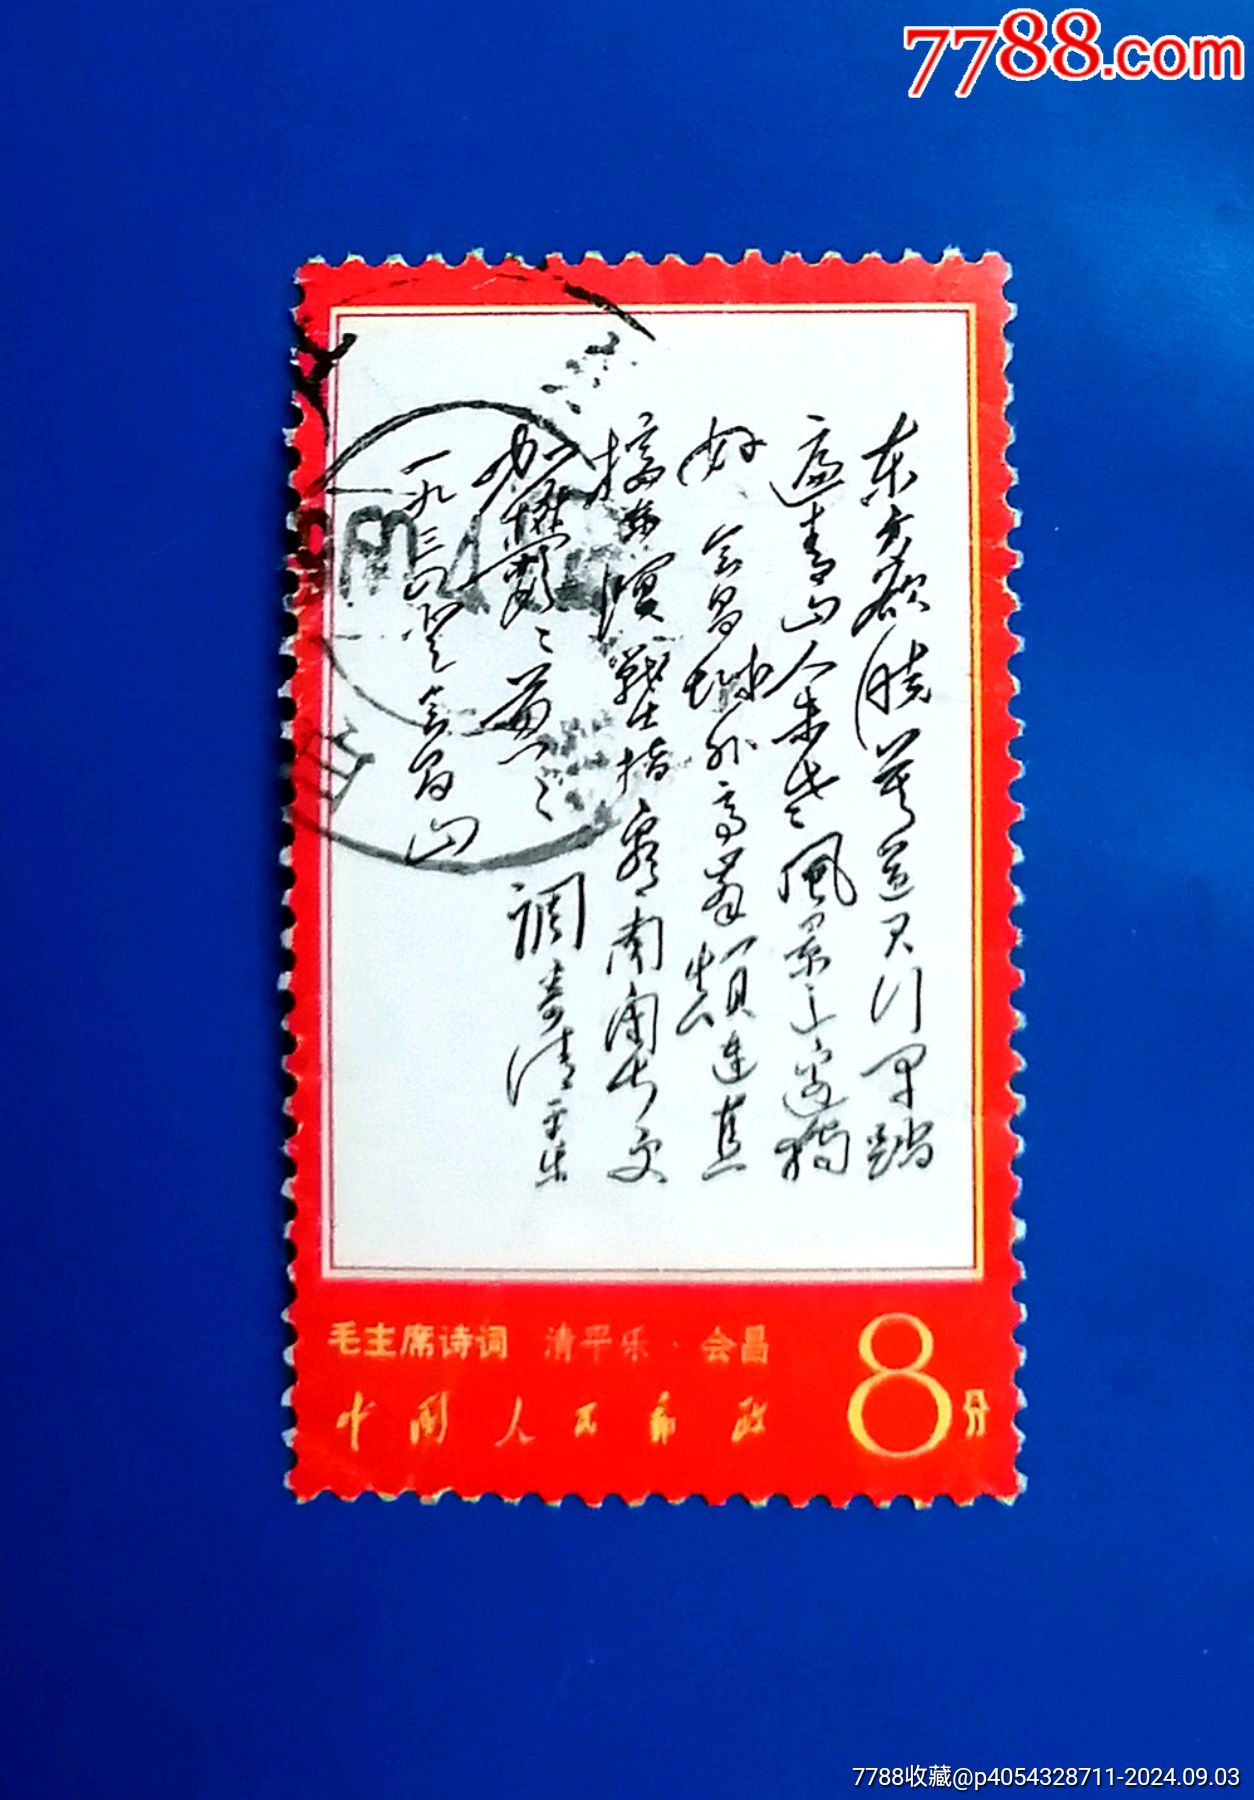 7788.com
东方欲晓莫道君行早踏
遍青山人未老风景这边独
好 会昌城外高峰颠连直
接东溟战士指看南粤更
加鬱〻葱〻 调寄清平乐
一九三四登会昌山
毛主席诗词 清平乐·会昌
中国人民邮政
8分
7788收藏@p4054328711-2024.09.03